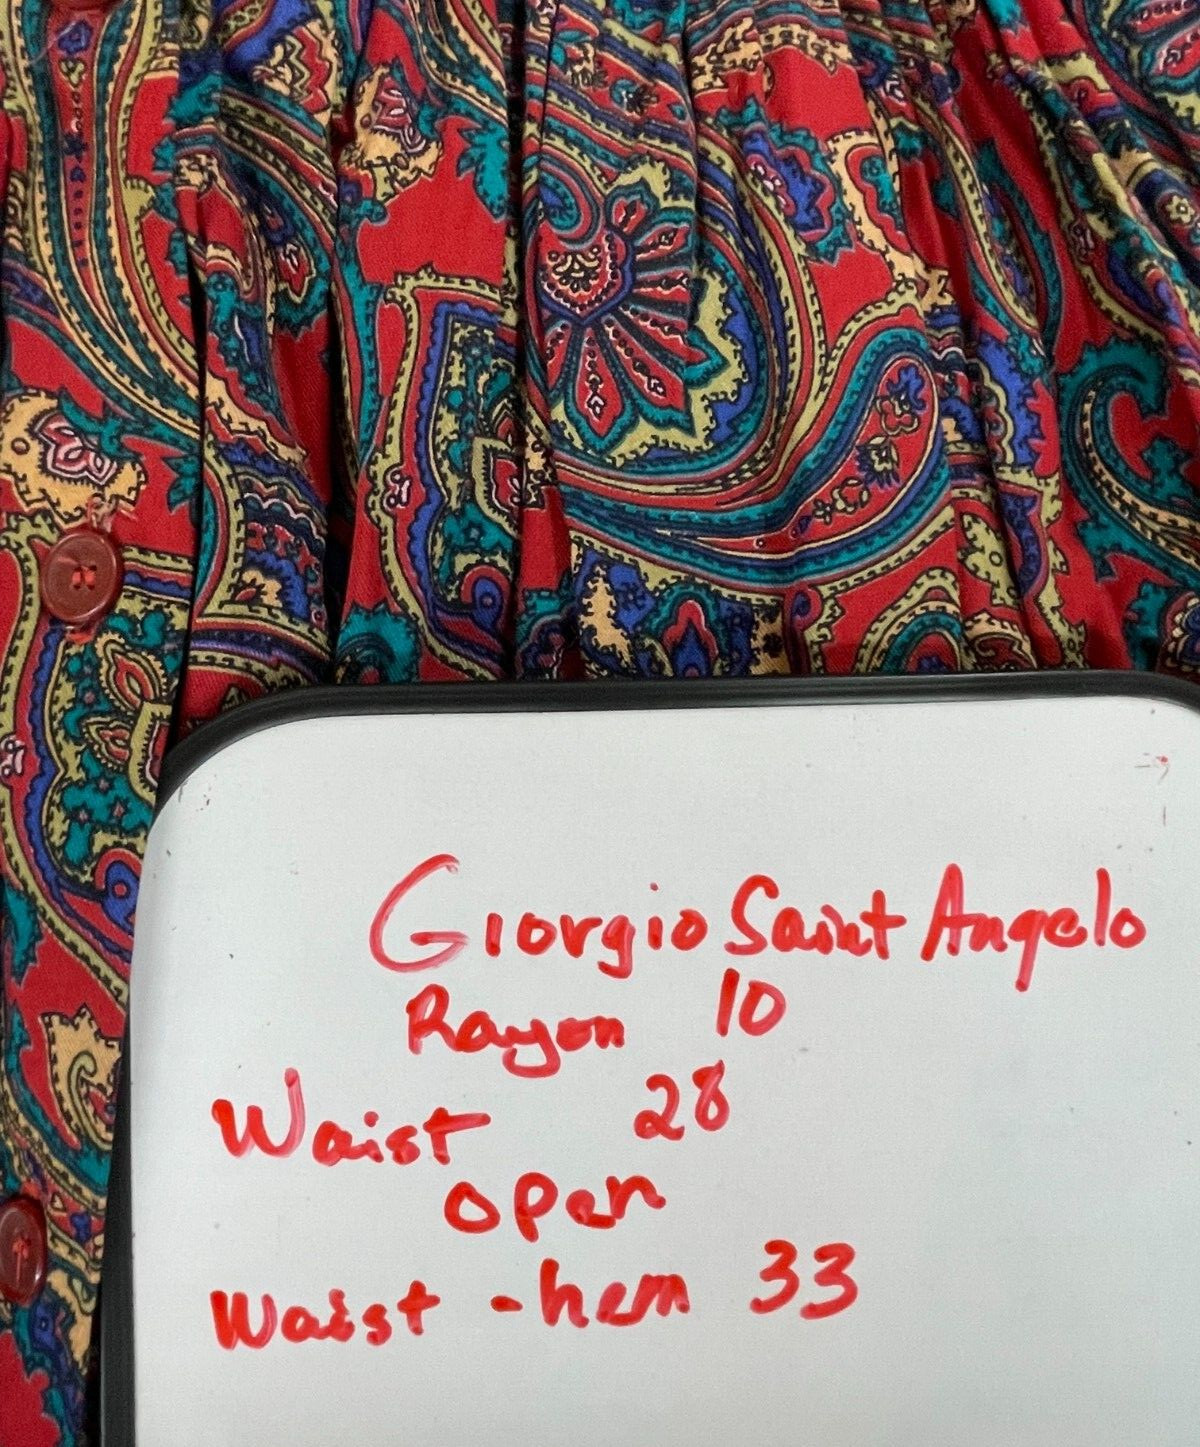 Giorgio Saint Angelo
Rayon 10
Waist 28
open
Waist - hem 33